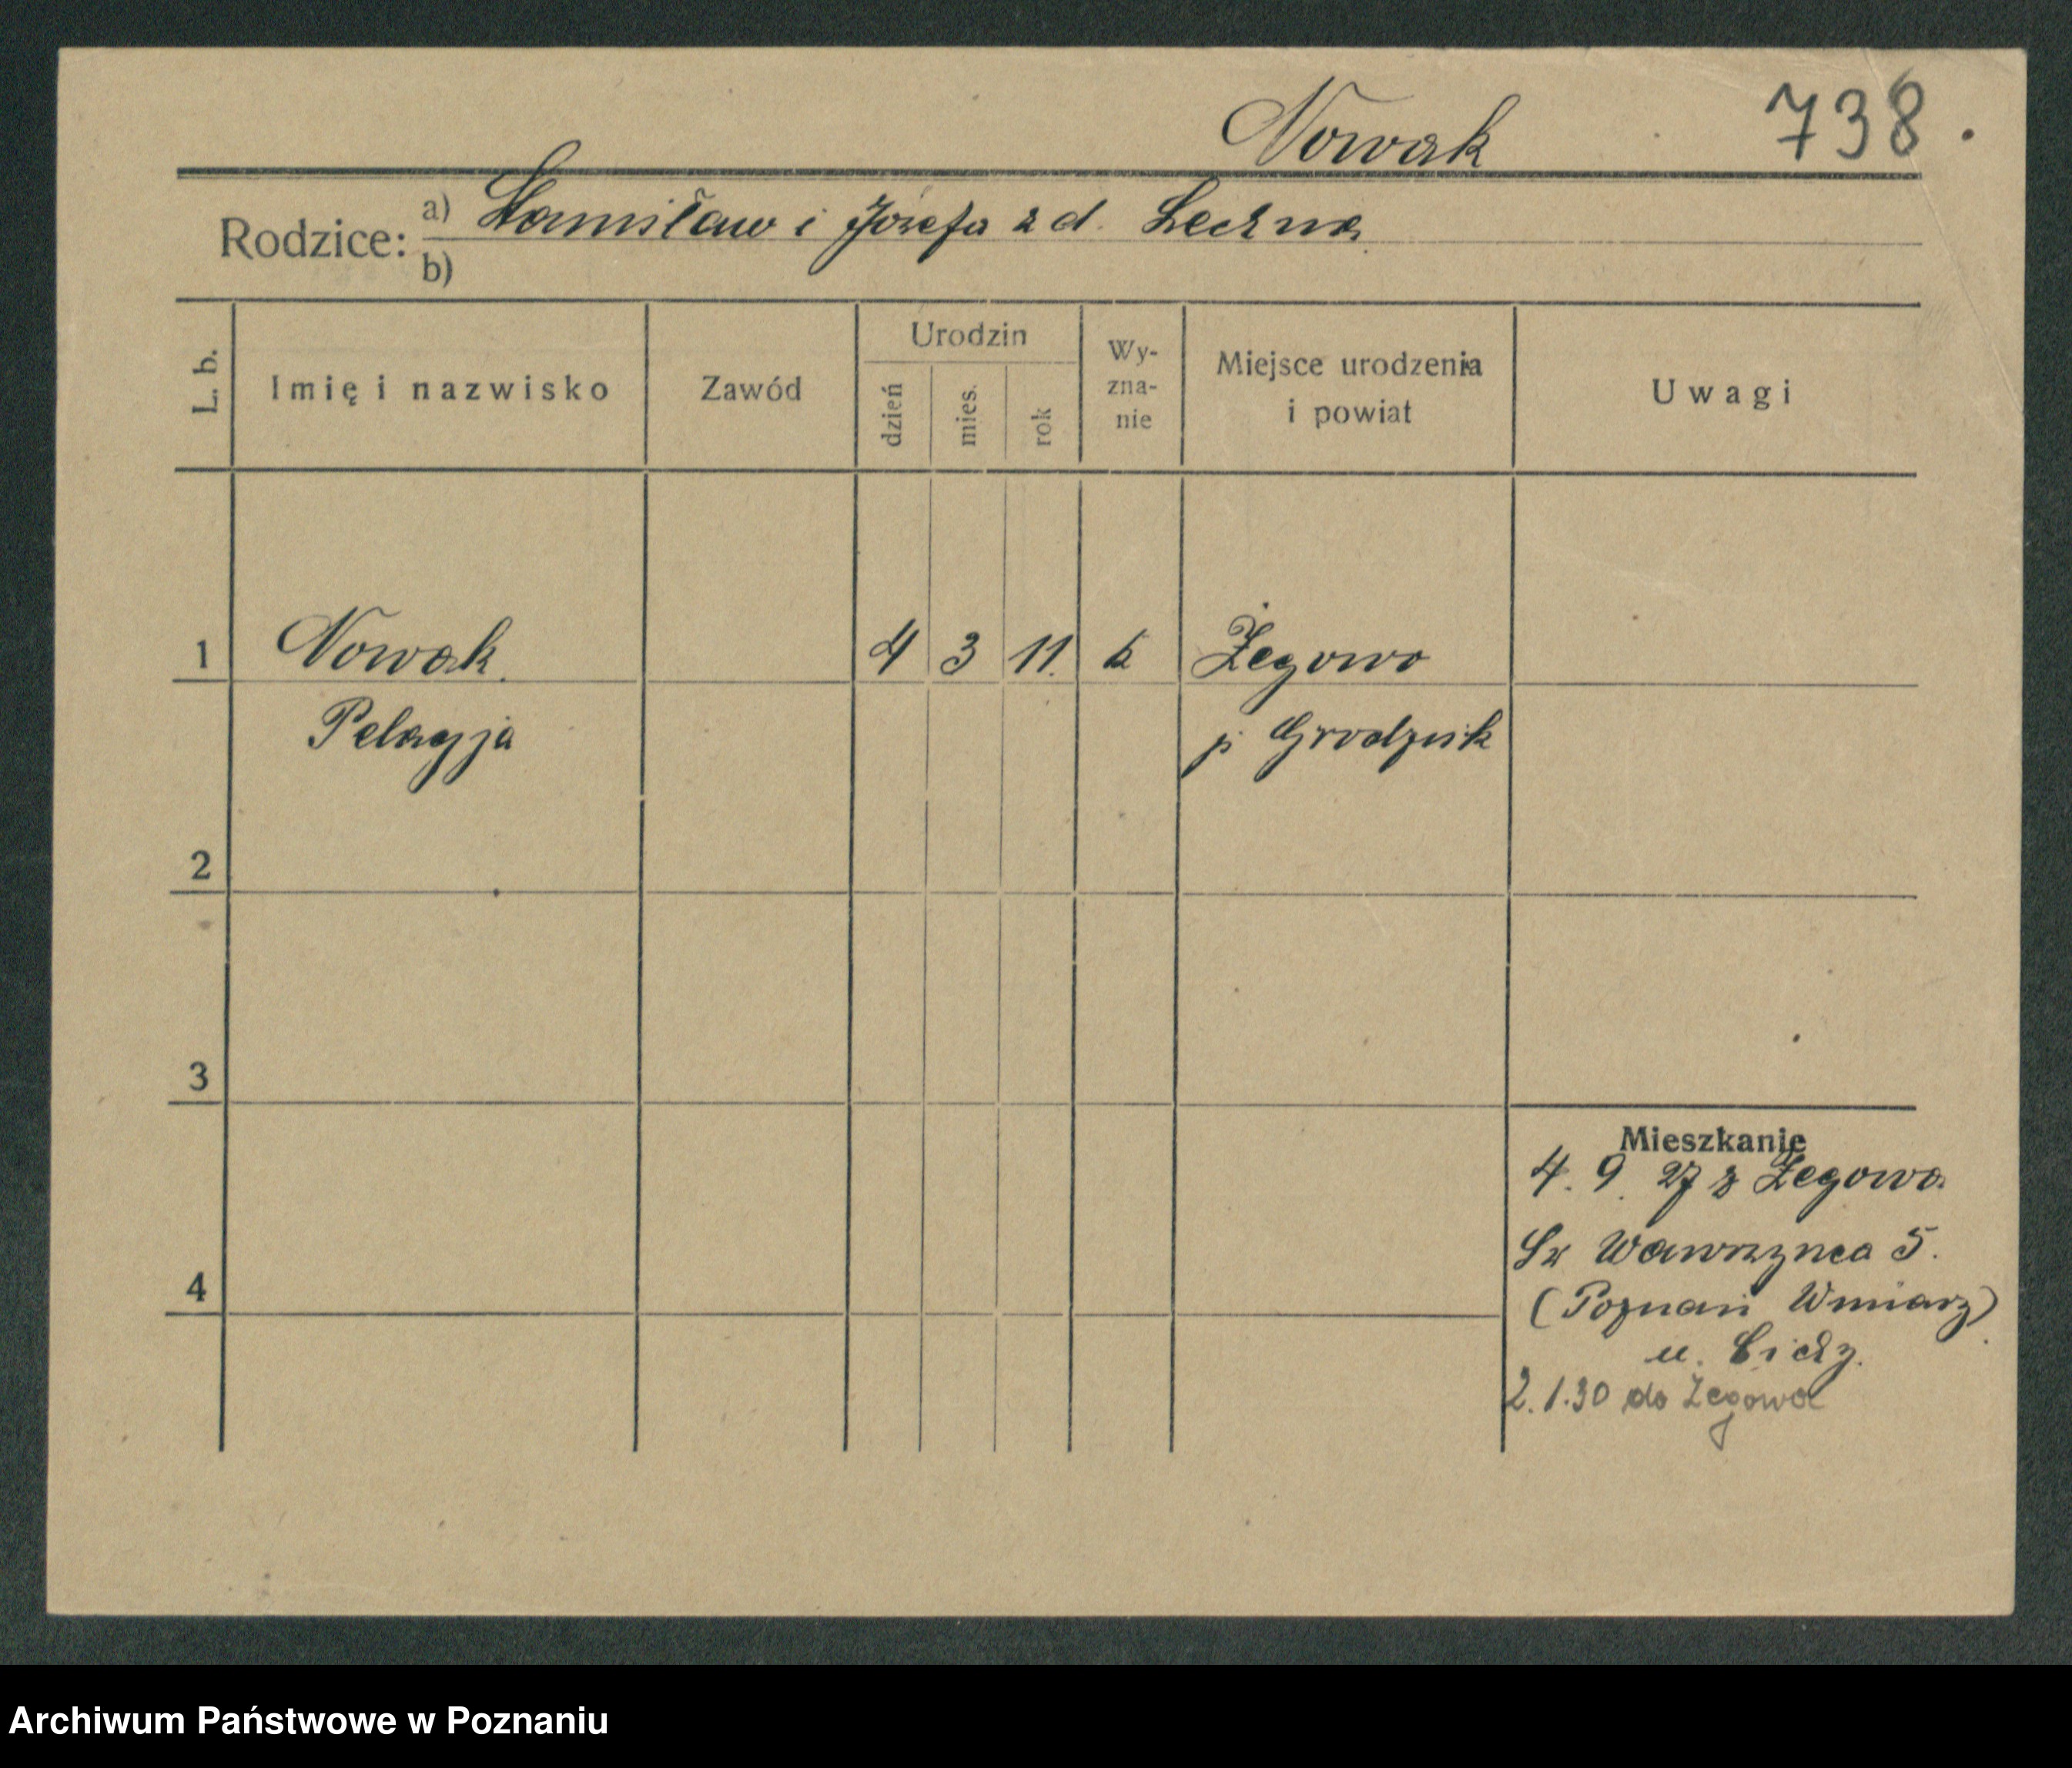 Nowak 738.
Rodzice: a) Stanisław i Józefa z d. Leczna
b)
L. b. Imię i nazwisko Zawód Urodzin dzień mies. rok Wy-zna-nie Miejsce urodzenia i powiat Uwagi
1 Nowak 4 3 11. k Żegowo
Pelagja p Grodzisk
2
3
4
Mieszkanie
4. 9. 27 z Żegowa
Św Wawrzyńca 5.
(Poznań Winiary)
u.
2.1.30 do Żegowa
Archiwum Państwowe w Poznaniu